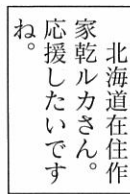 北海道在住作
家乾ルカさん。
応援したいです
ね。